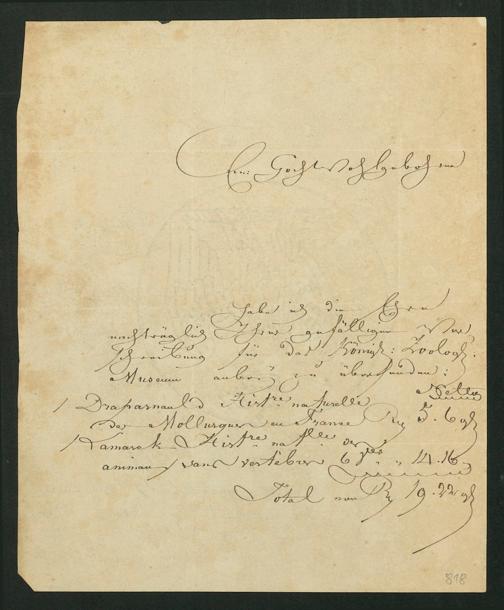 Ew: Hochwohlgebohren
habe ich die Ehre
nachträglich Ihrer gefälligen Vor
schreibung für das Königl: Zoolog:
Museum anbey zu übersenden:
Netto
1 Draparnaud Histre naturelle
des Mollusques en France Rℓ 5. 6 gℓ
1 Lamarck Histre natlle des
animaux sans vertebres 6 14.16
Total 19.22 gℓ
818